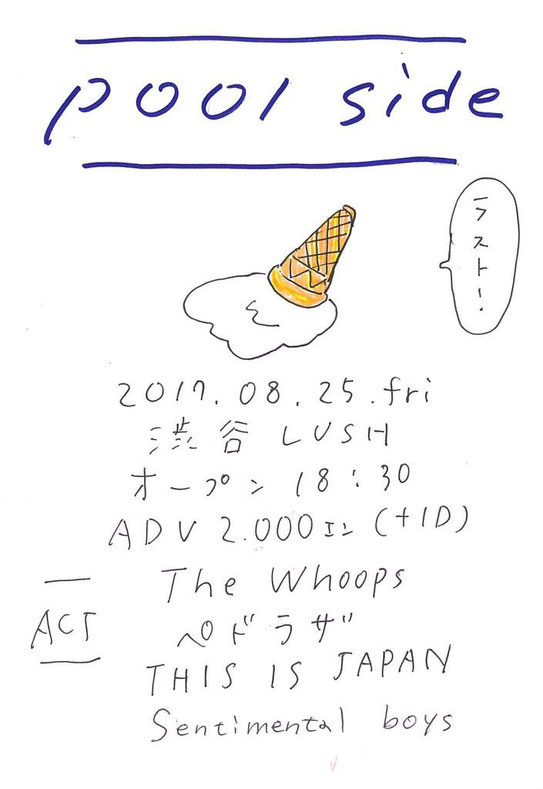 pool side
ラスト!
2017.08.25.fri
渋谷 LUSH
オープン 18:30
ADV 2.000エン(+1D)
The Whoops
ACT
ペドラザ
THIS IS JAPAN
Sentimental boys